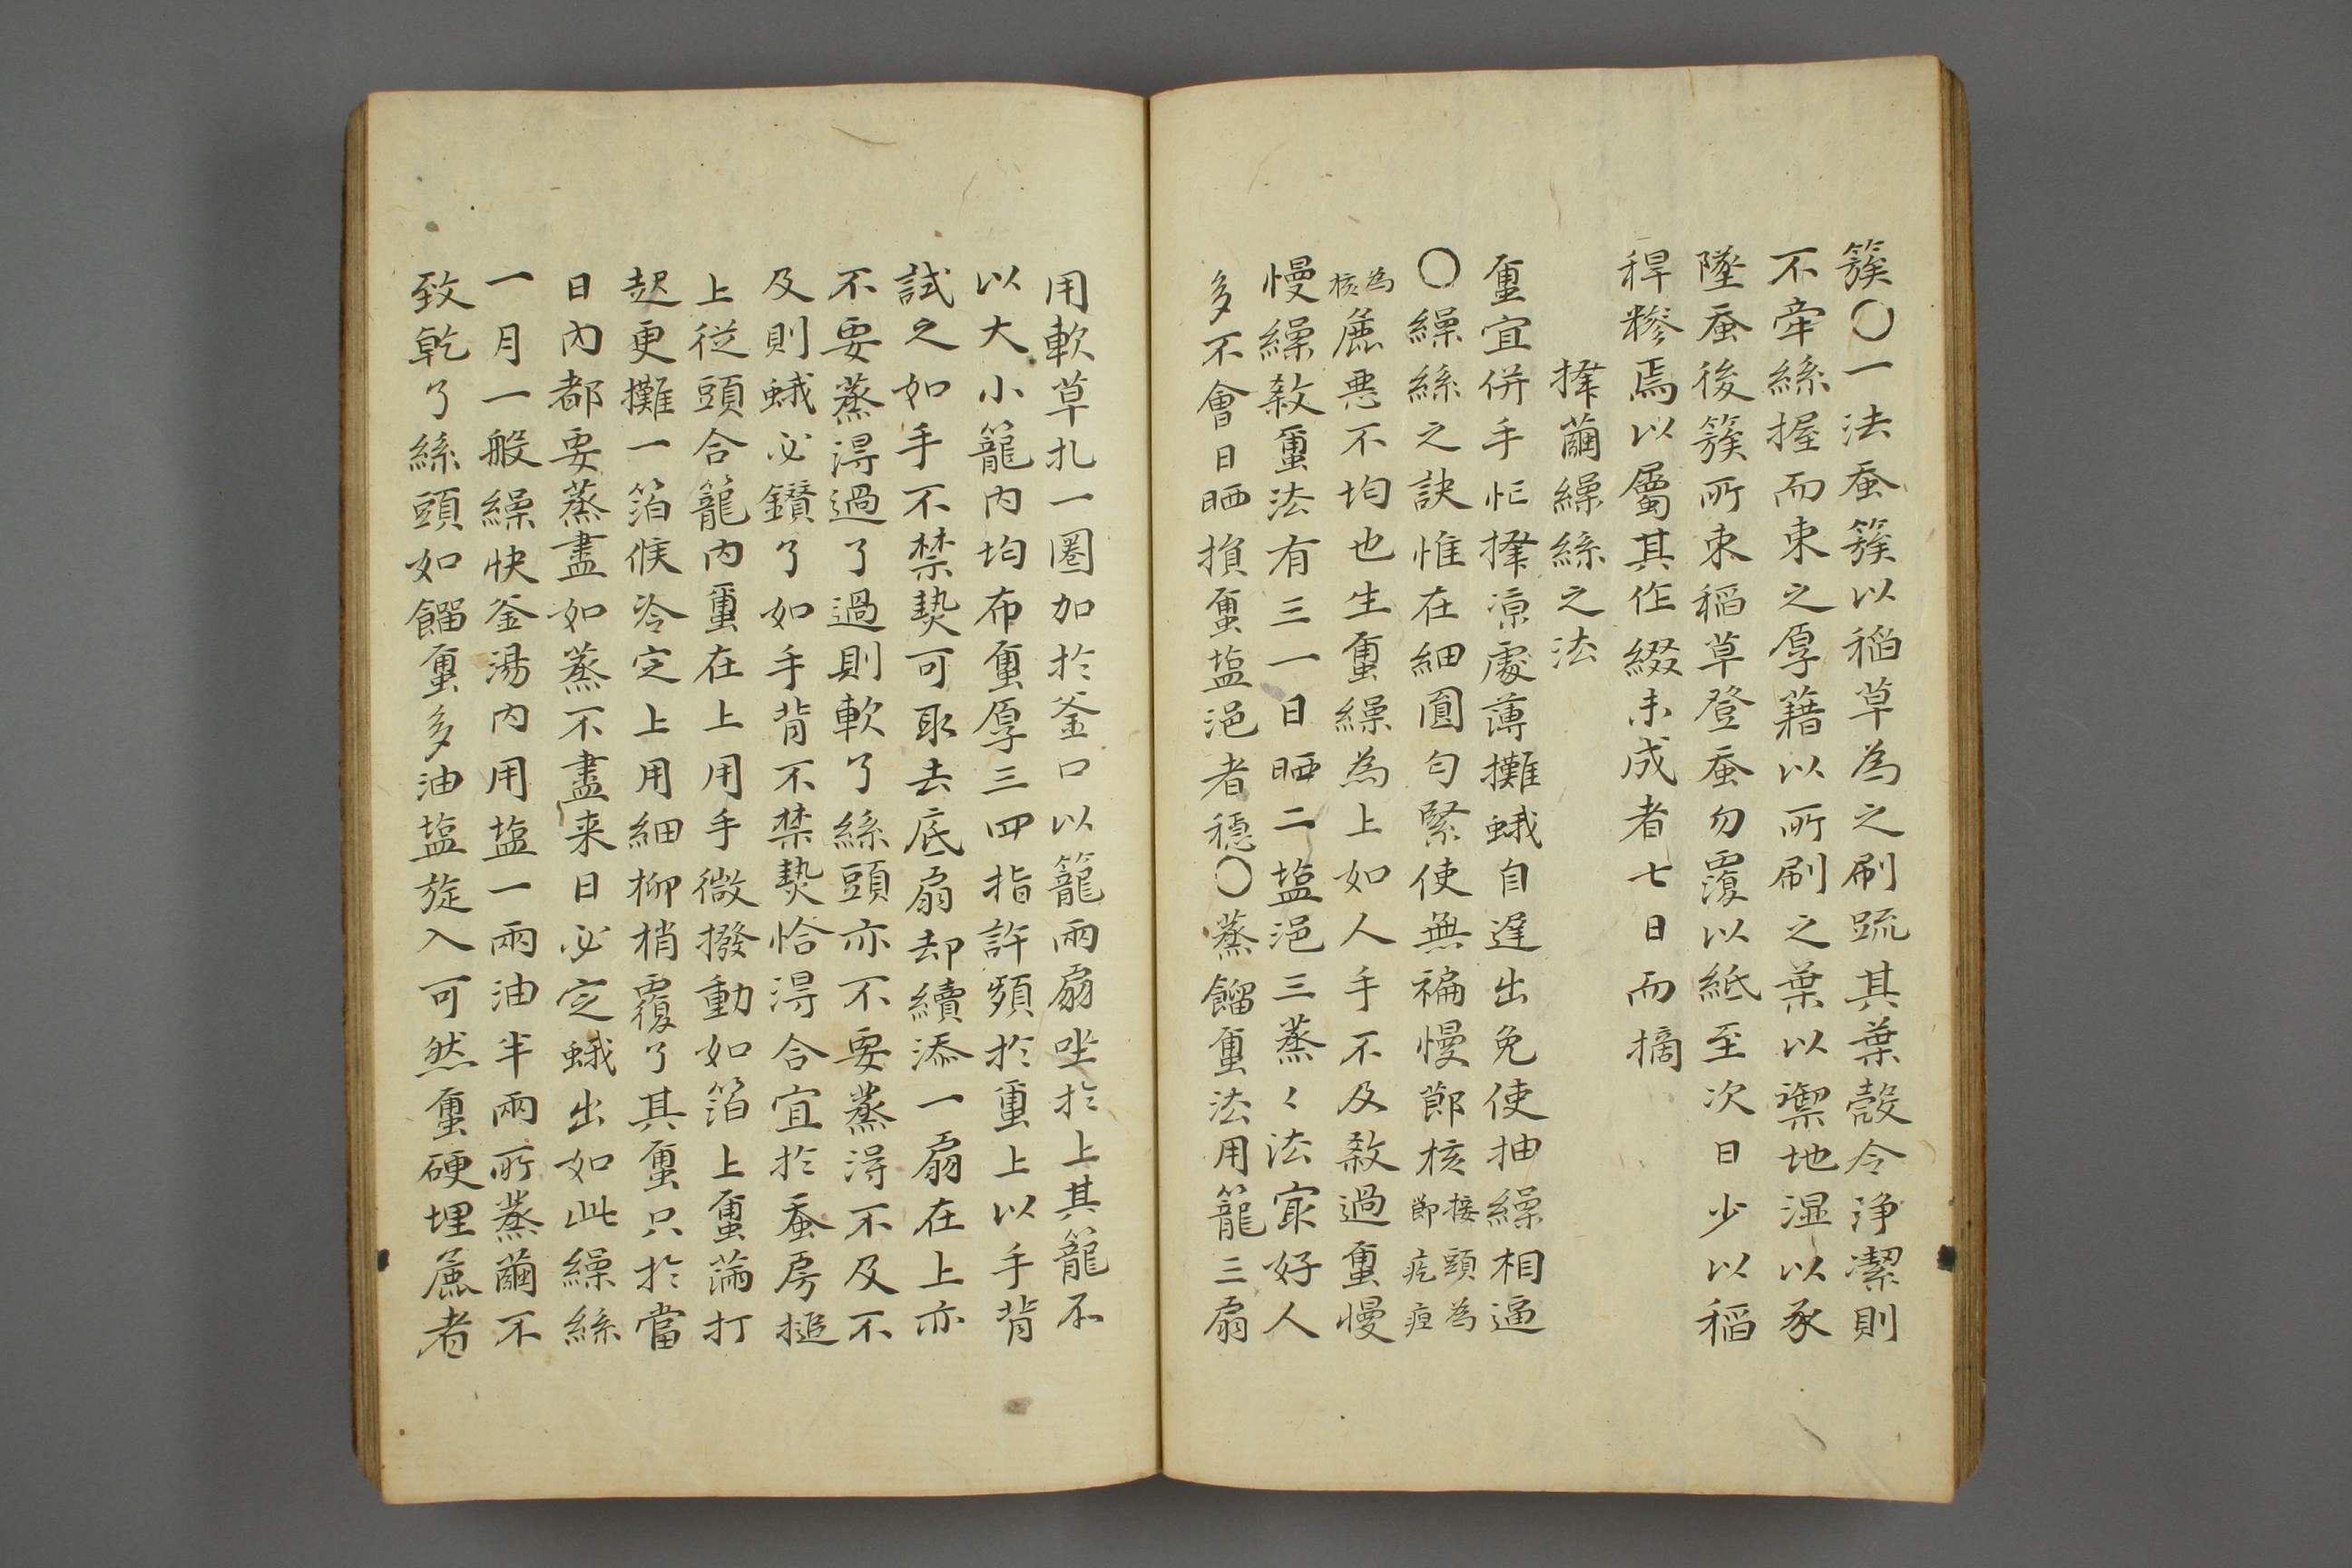 簇〇一法蚕簇以稻草為之刷䟽其葉殼令浄潔則
不牽絲握而束之厚藉以所刷之葉以禦地湿以承
墜蚕後簇所束稻草登蚕勿覆以紙至次日少以稻
稈糝焉以屬其作綴未成者七日而摘
擇繭繰絲之法
蠒宜併手忙擇凉處薄攤蛾自遅出免使抽繰相逼
〇繰絲之訣惟在細圓匀緊使無褊慢節核接頭為節疙疸
為核麁悪不均也生蠒繰為上如人手不及殺過蠒慢
慢繰殺蠒法有三一日晒二塩浥三蒸〻法㝡好人
多不會日晒損蠒塩浥者穏〇蒸餾蠒法用籠三扇
用軟草扎一圏加於釜口以籠兩扇坐於上其籠不
以大小籠内均布蠒厚三四指許頻於蠒上以手背
試之如手不禁𤍠可取去底扇却續添一扇在上亦
不要蒸淂過了過則軟了絲頭亦不要蒸淂不及不
及則蛾必鑚了如手背不禁𤍠恰淂合宜於蚕房搥
上従頭合籠内蠒在上用手微撥動如箔上蠒滿打
起更攤一箔候冷㝎上用細柳梢覆了其蠒只於當
日内都要蒸盡如蒸不盡来日必㝎蛾出如此繰絲
一月一般繰快釜湯内用塩一兩油半兩所蒸繭不
致乾了絲頭如餾蠒多油塩旋入可然蠒硬埋麁者